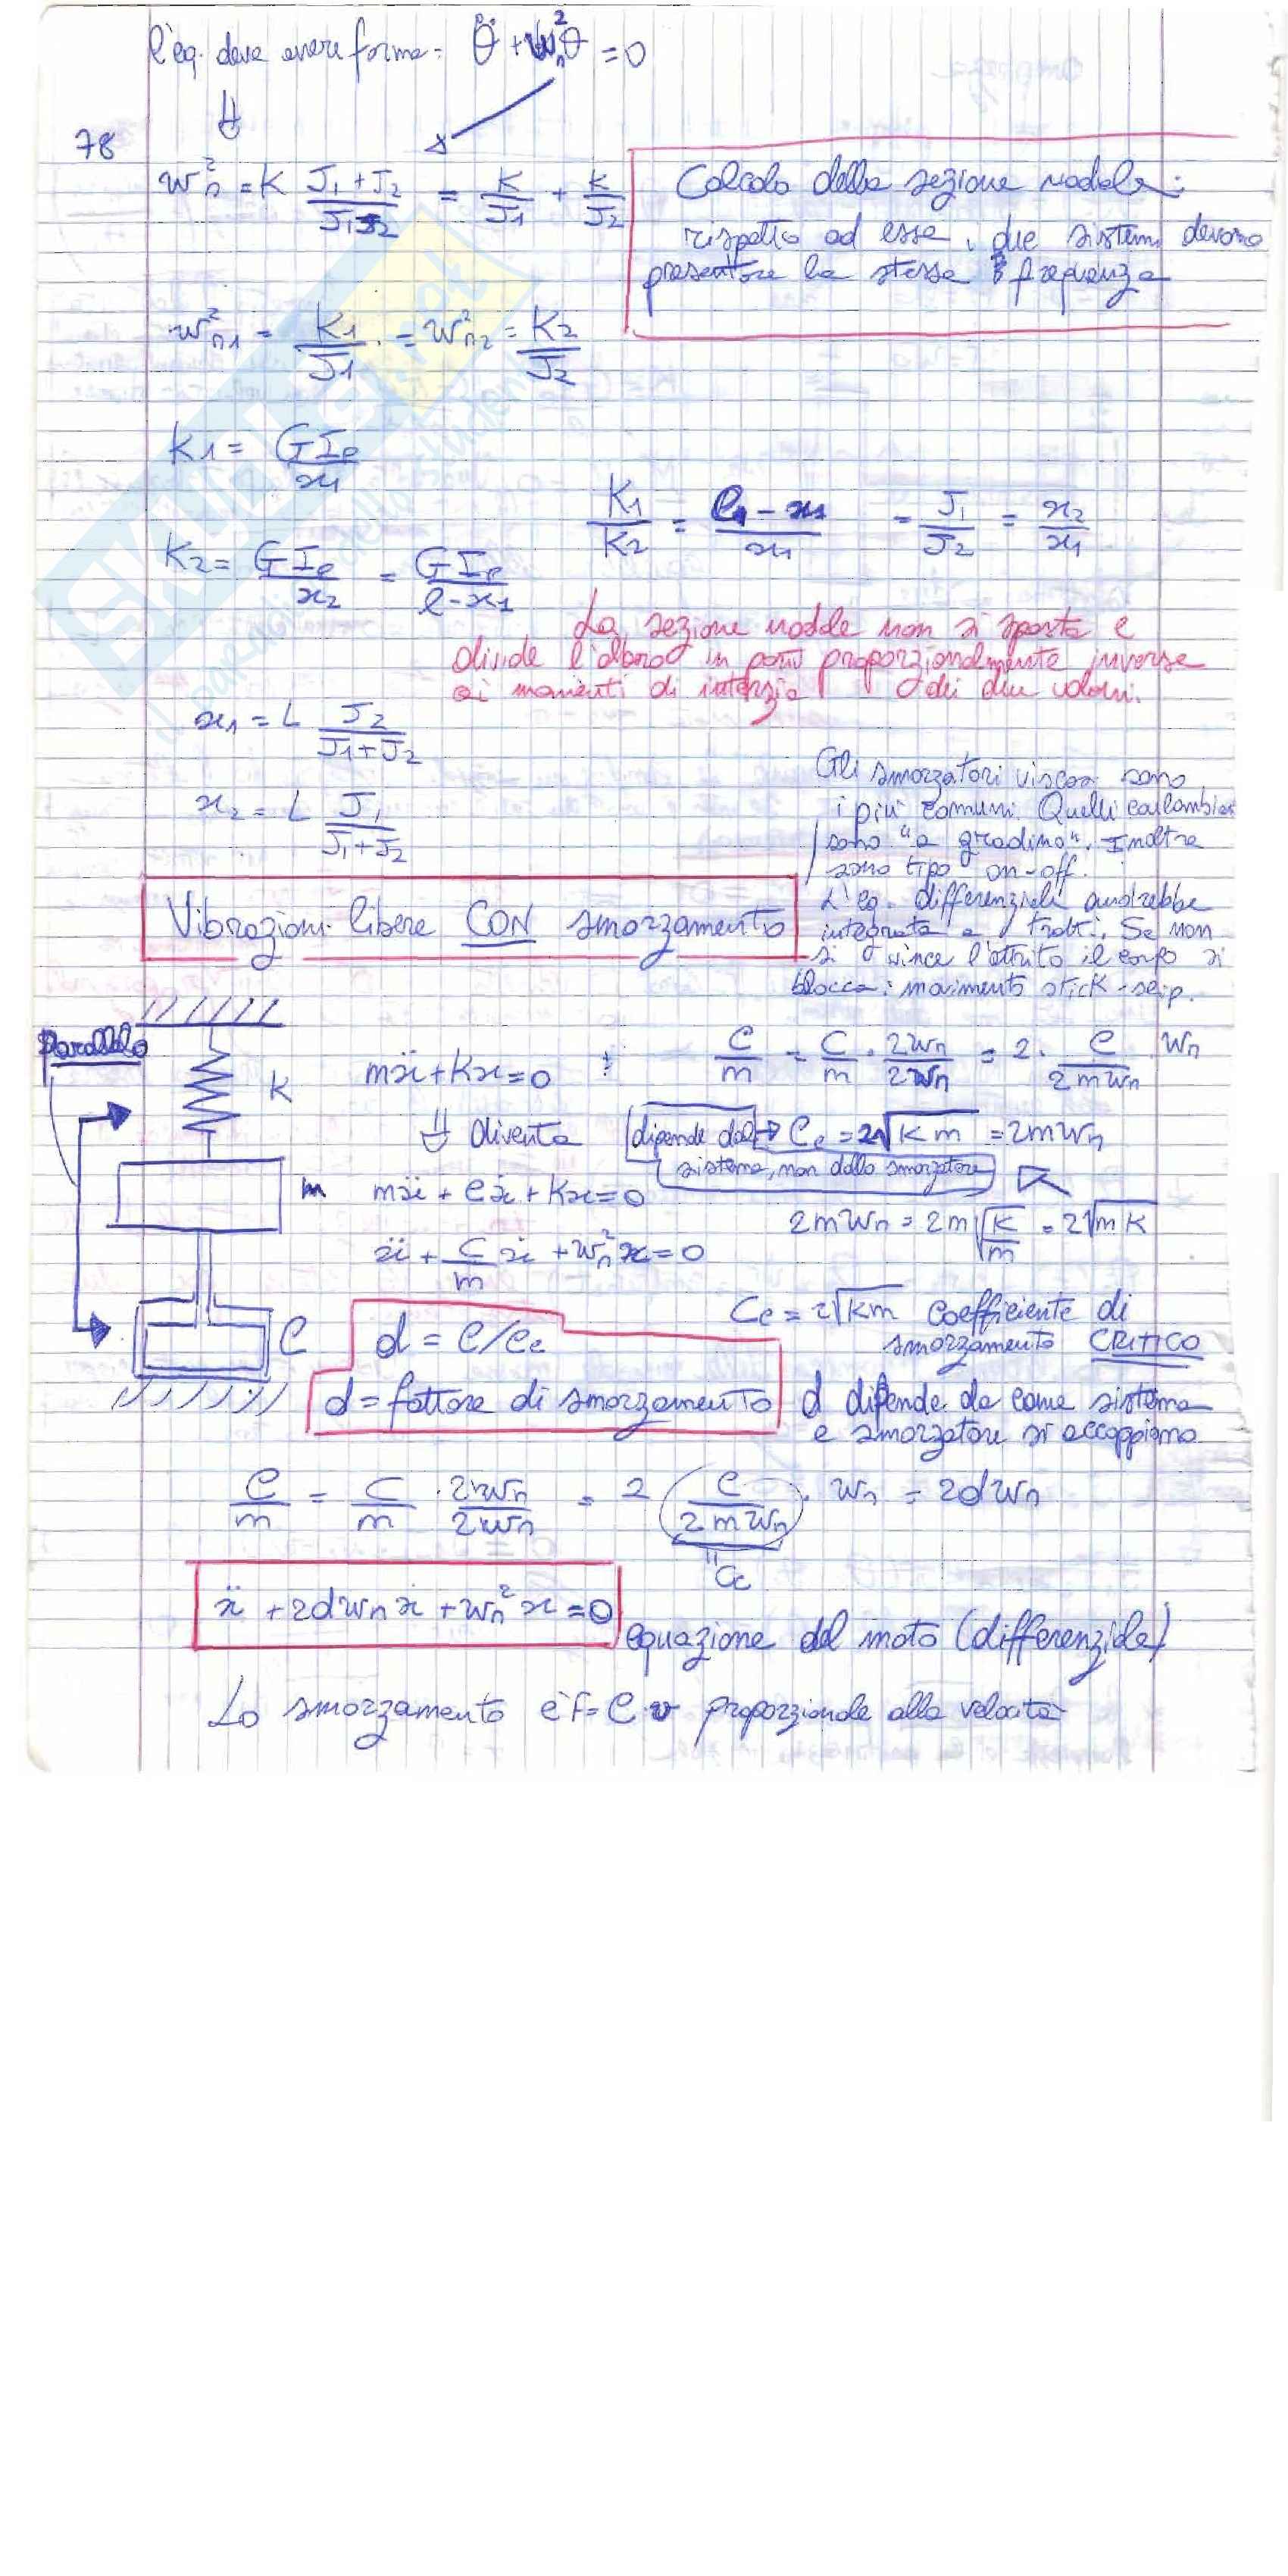 l'eq. deve avere forma: θ̈ + ωn²θ = 0
⇓
78
ωn² = K (J1+J2)/(J1J2) = K/J1 + K/J2
Calcolo della sezione nodale:
rispetto ad essa i due sistemi devono
presentare la stessa frequenza
ωn1² = K1/J1 = ωn2² = K2/J2
K1 = GIp/x1
K1/K2 = (l-x1)/x1 = J1/J2 = x2/x1
K2 = GIp/x2 = GIp/(l-x1)
La sezione nodale non si sposta e
divide l'albero in parti proporzionalmente inverse
ai momenti di inerzia dei due volani.
x1 = L J2/(J1+J2)
x2 = L J1/(J1+J2)
Gli smorzatori viscosi sono
i più comuni. Quelli coulombiani
sono "a gradino". Inoltre
sono tipo on-off.
L'eq. differenziale andrebbe
integrata a tratti. Se non
si vince l'attrito il corpo si
blocca: movimento stick-slip.
Vibrazioni libere CON smorzamento
Parallelo
K
mẍ + Kx = 0
C/m = C/m · 2ωn/2ωn = 2 · C/(2mωn) · ωn
⇓ diventa
dipende dal → Cc = 2√Km = 2mωn
sistema, non dallo smorzatore
m
mẍ + cẋ + Kx = 0
2mωn = 2m√(K/m) = 2√mK
ẍ + C/m ẋ + ωn²x = 0
C
Cc = 2√Km coefficiente di
smorzamento CRITICO
d = C/Cc
d = fattore di smorzamento
d dipende da come sistema
e smorzatore si accoppiano
C/m = C/m · 2ωn/2ωn = 2 (C/(2mωn)) · ωn = 2dωn
" Cc
ẍ + 2dωnẋ + ωn²x = 0
equazione del moto (differenziale)
Lo smorzamento è F = C·v proporzionale alla velocità